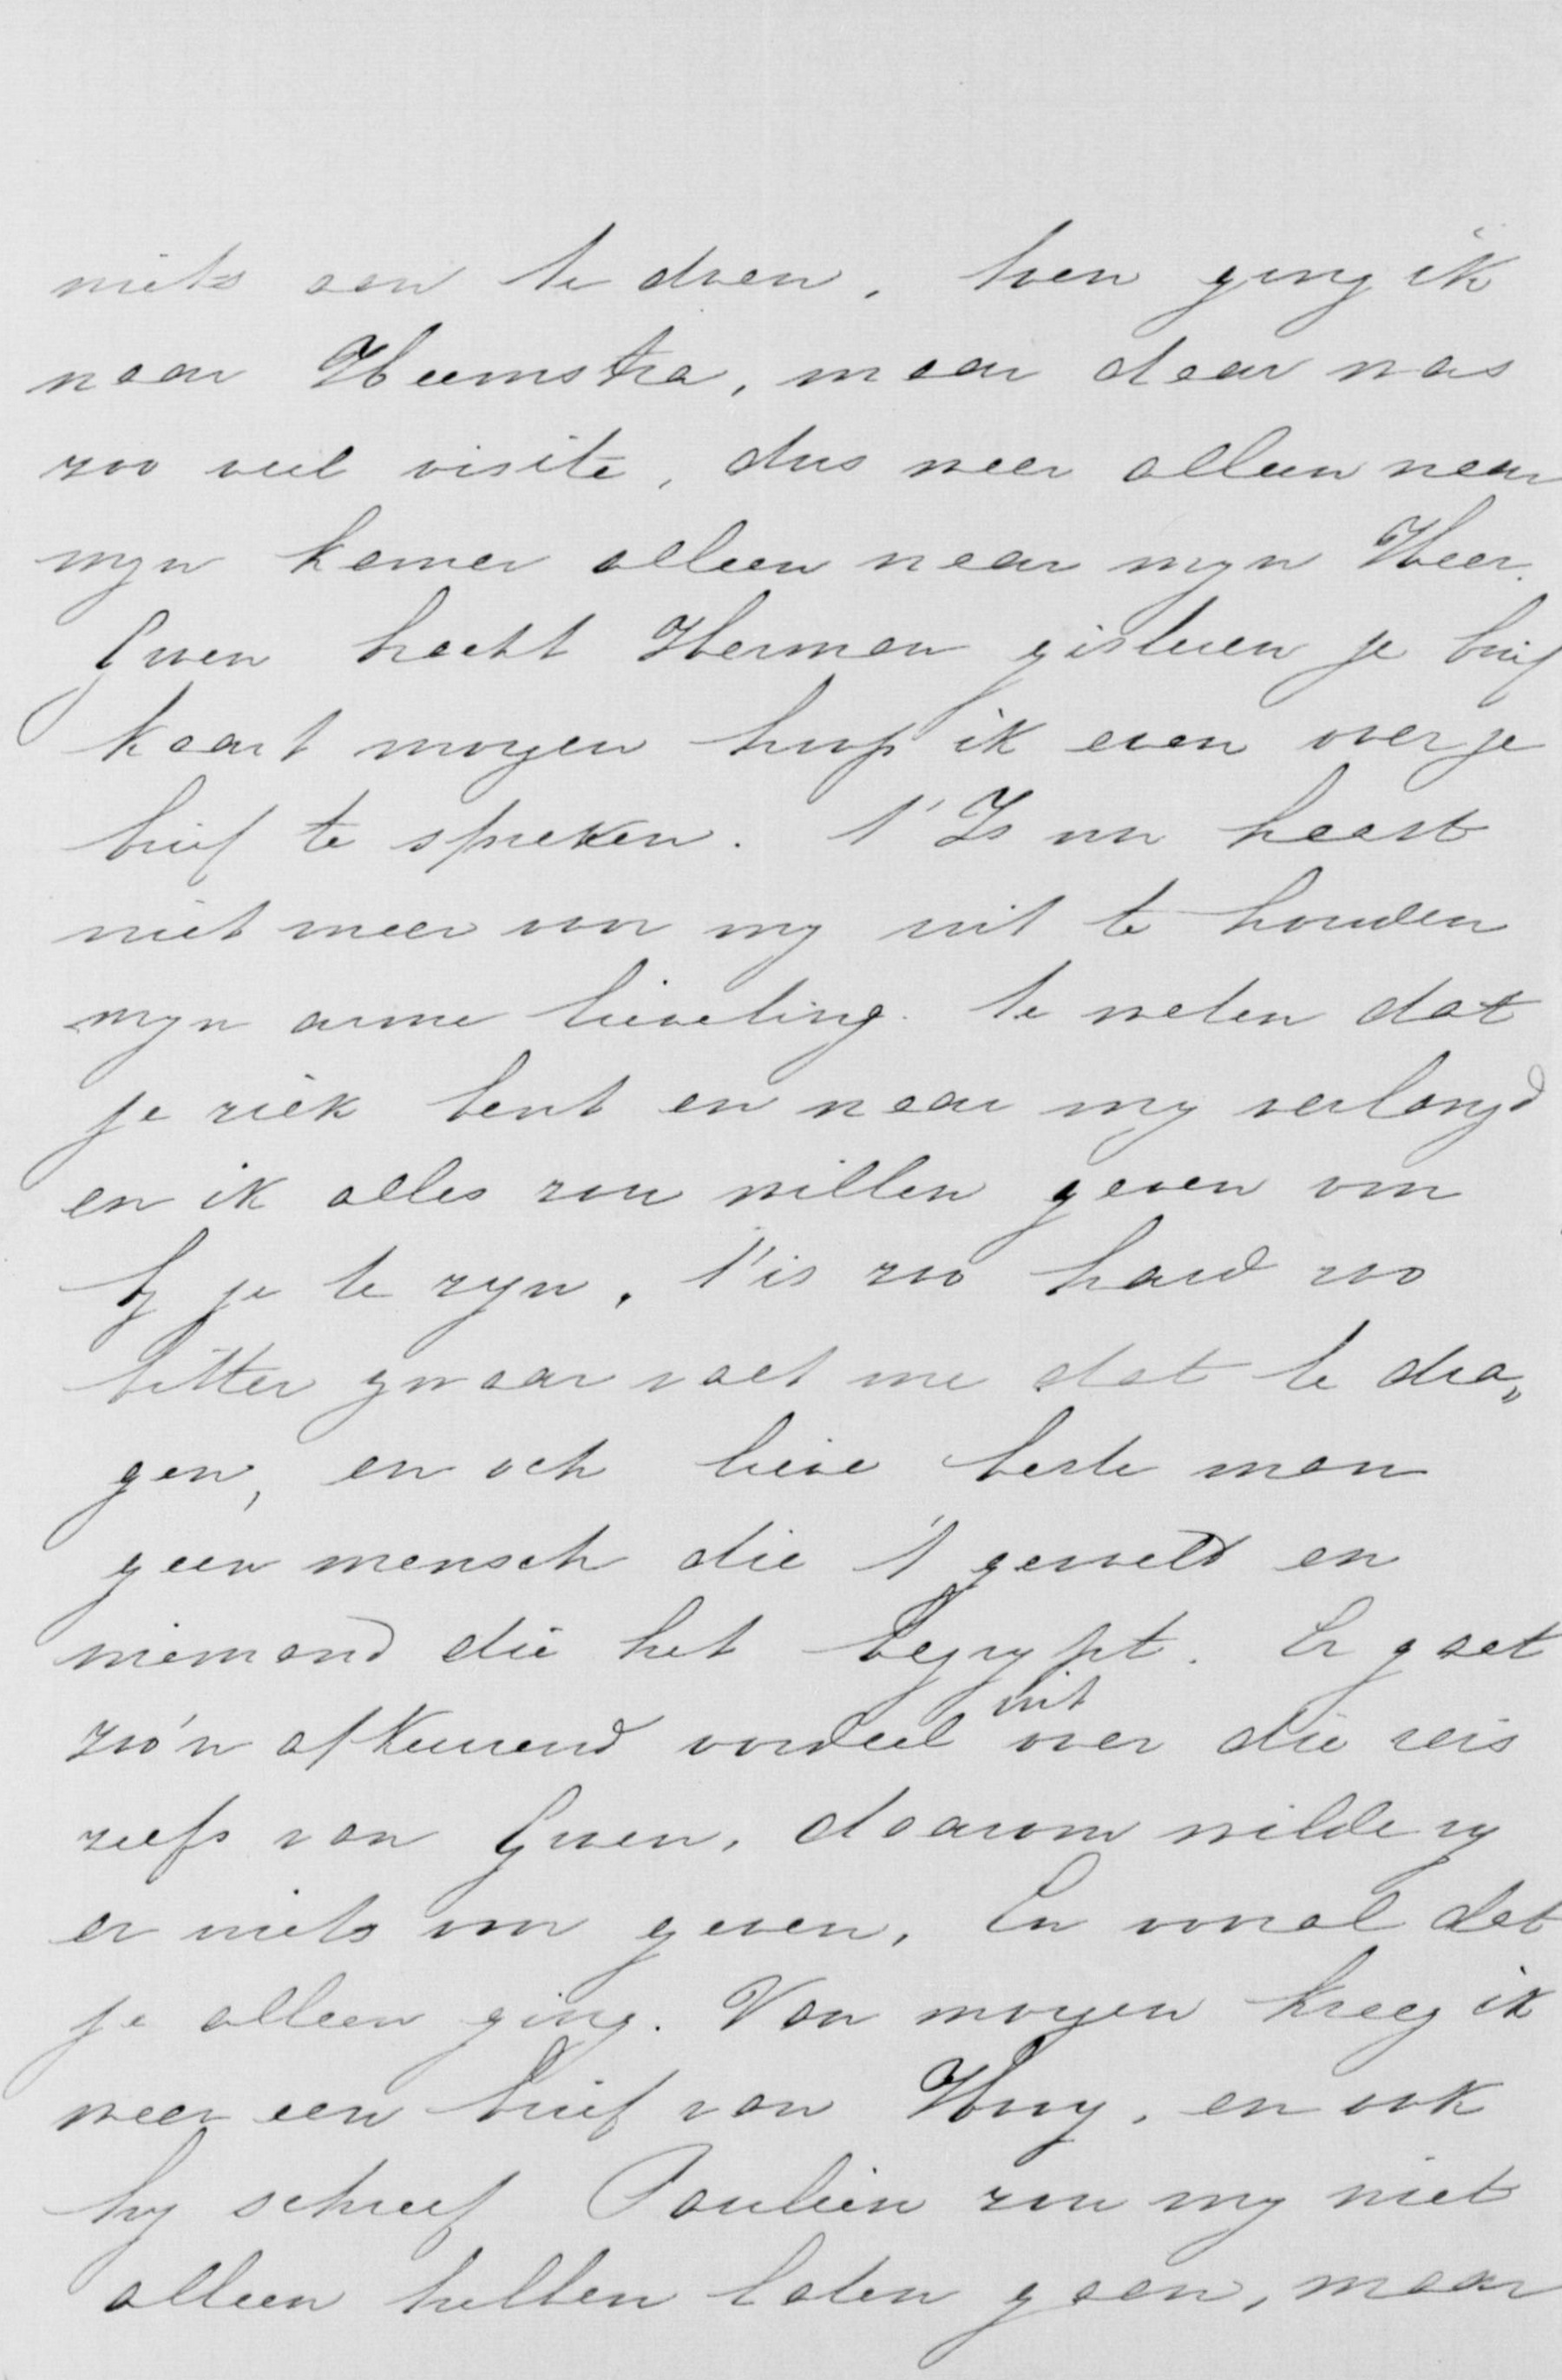 niets aan te doen. toen ging ik
naar Heemstra, maar daar was
zoo veel visite, dus weer alleen naar
myn kamer alleen naar myn Heer.
Gwen bracht Herman gisteren je brief
kaart morgen hoop ik even over je
brief te spreken. t' Is nu haast
niet meer voor my uit te houden
myn arme lieveling. te weten dat
je ziek bent en naar my verlangd
en ik alles zou willen geven om
by je te zyn. t'is zoo hard zoo
bitter zwaar valt me dat te dra„
gen, en och lieve beste man
geen mensch die 't gevoeld en
niemand die het begrypt. Er gaat
zoo'n afkeurend oordeel uit over die reis
zelfs van Gwen, daarom wilde zy
er niets om geven. En vooral dat
je alleen ging. Van morgen kreeg ik
weer een brief van Huy, en ook
hy schreef Paulien zou my niet
alleen hebben laten gaan, maar